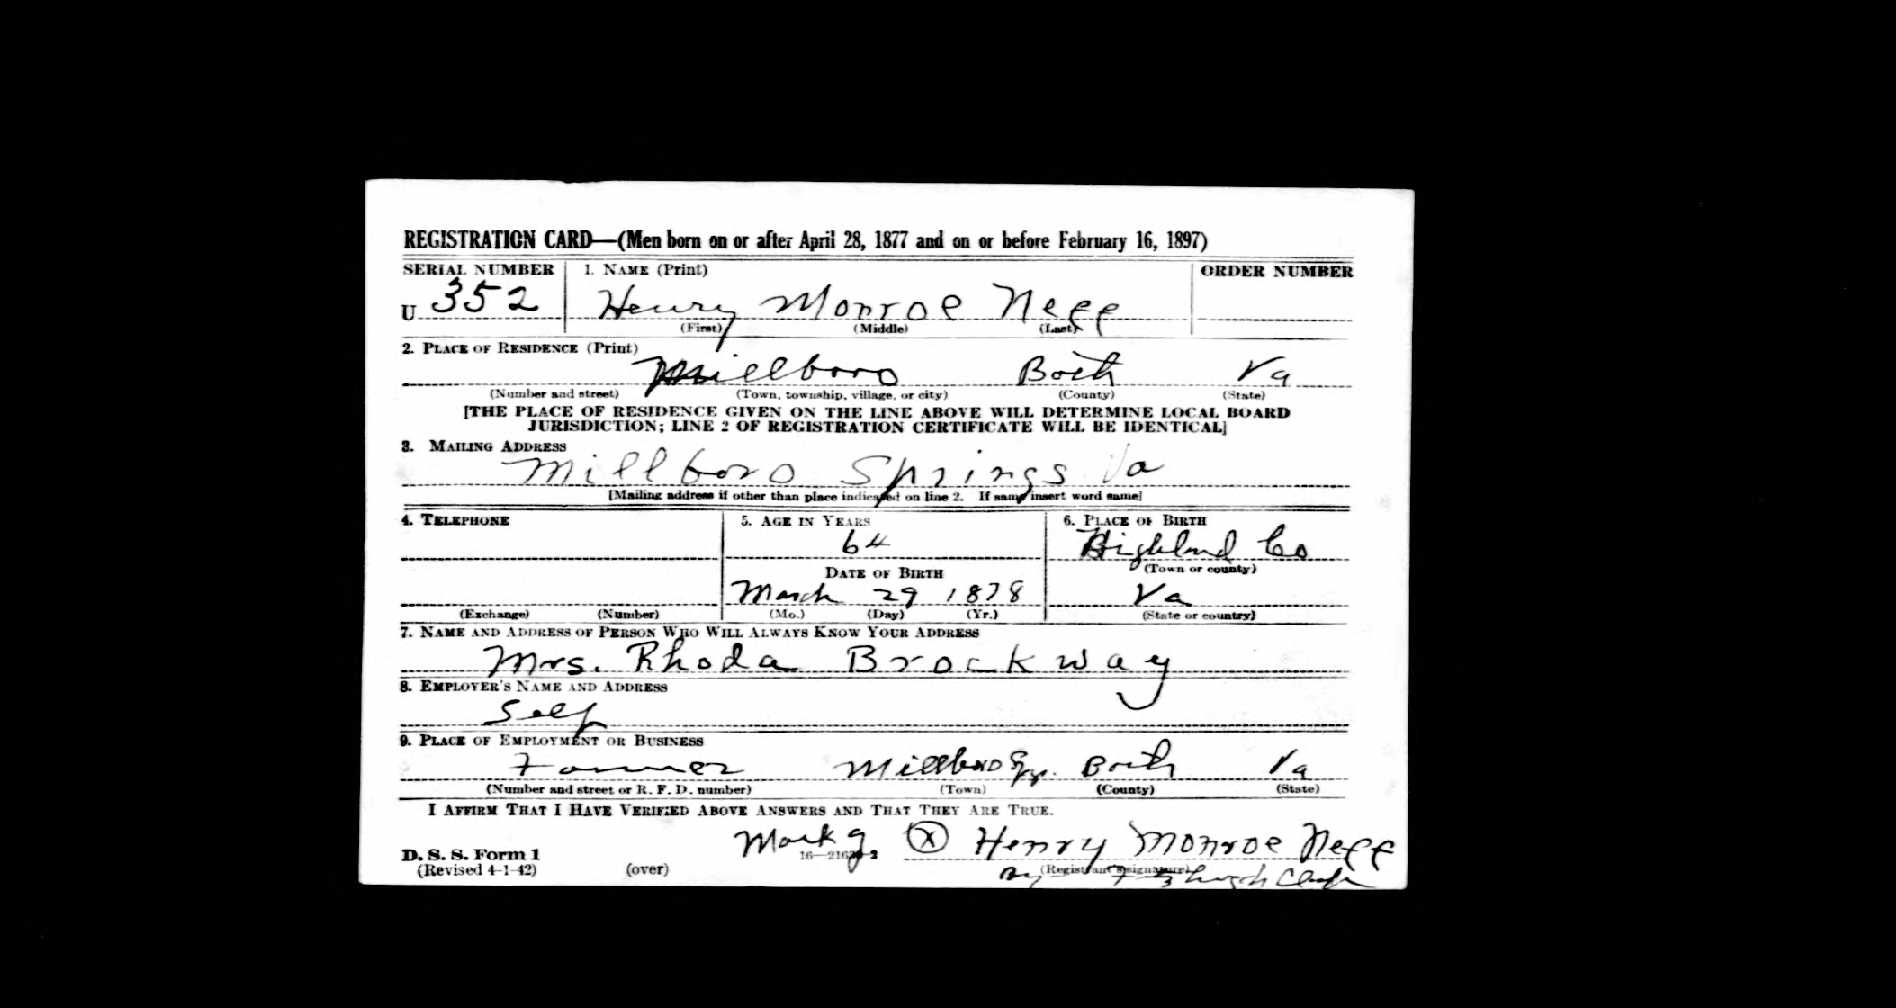 REGISTRATION CARD—(Men born on or after April 28, 1877 and on or before February 16, 1897)
SERIAL NUMBER 1. NAME (Print) ORDER NUMBER
U 352 Henry Monroe Neff
(First) (Middle) (Last)
2. PLACE OF RESIDENCE (Print)
Millboro Bath Va
(Number and street) (Town, township, village, or city) (County) (State)
[THE PLACE OF RESIDENCE GIVEN ON THE LINE ABOVE WILL DETERMINE LOCAL BOARD
JURISDICTION; LINE 2 OF REGISTRATION CERTIFICATE WILL BE IDENTICAL]
3. MAILING ADDRESS
Millboro Springs Va
[Mailing address if other than place indicated on line 2. If same insert word same]
4. TELEPHONE 5. AGE IN YEARS 6. PLACE OF BIRTH
64 Highland Co
DATE OF BIRTH (Town or county)
March 29 1878 Va
(Exchange) (Number) (Mo.) (Day) (Yr.) (State or country)
7. NAME AND ADDRESS OF PERSON WHO WILL ALWAYS KNOW YOUR ADDRESS
Mrs. Rhoda Brockway
8. EMPLOYER'S NAME AND ADDRESS
Self
9. PLACE OF EMPLOYMENT OR BUSINESS
Farmer Millboro Spgs. Bath Va
(Number and street or R. F. D. number) (Town) (County) (State)
I AFFIRM THAT I HAVE VERIFIED ABOVE ANSWERS AND THAT THEY ARE TRUE.
Mark of (X) Henry Monroe Neff
D. S. S. Form 1
(Revised 4-1-42) (over) (Registrant's signature)
By